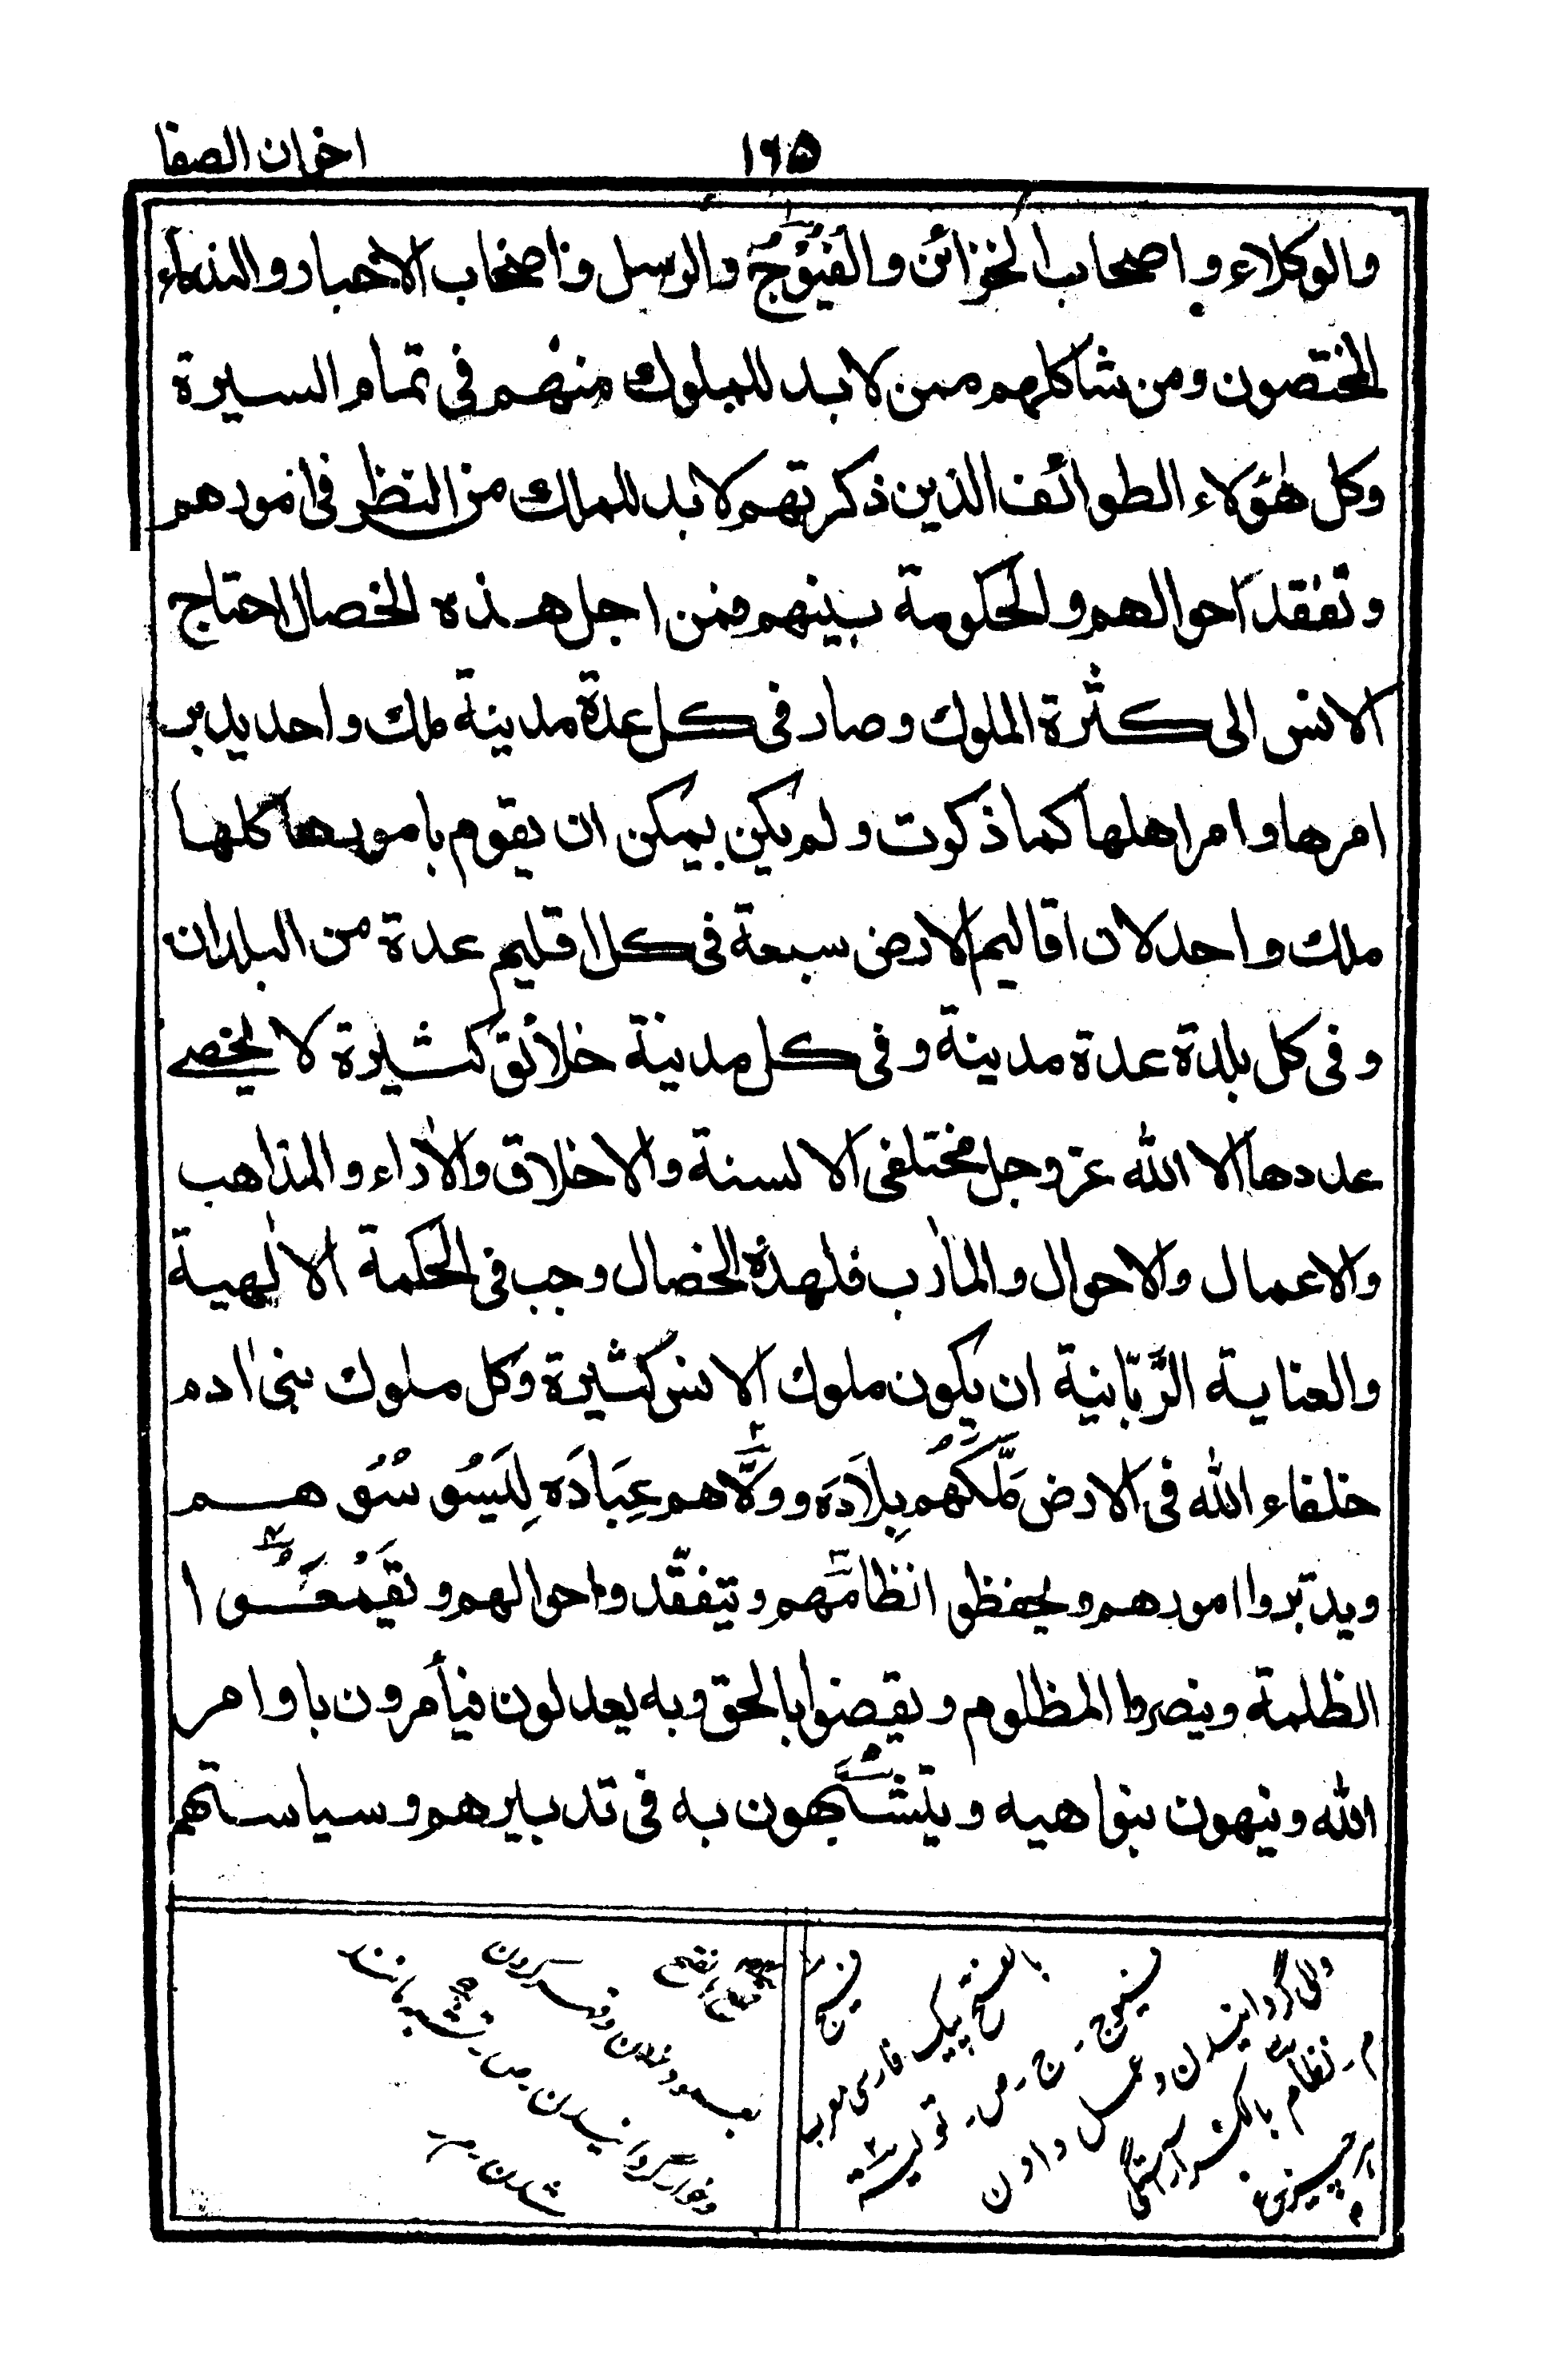 ۱۶۵ اخوان الصفا
والوكلاء واصحاب الخزائن والفُيُوْج والرسل واصحاب الاخبار والندماء
المختصون ومن شاكلهم ممن لا بد للملوك منهم فى تمام السيرة
وكل هٰؤلاء الطوائف الذين ذكرتهم لا بد للملك من النظر فى امورهم
وتفقد احوالهم والحكومة بينهم فمن اجل هذه الخصال احتاج
الانس الى كثرة الملوك وصار فى كل عدة مدينة ملك واحد يدبر
امرها وامر اهلها كما ذكرت ولم يكن يمكن ان يقوم بامورها كلها
ملك واحد لان اقاليم الارض سبعة فى كل اقليم عدة من البلدان
وفى كل بلدة عدة مدينة وفى كل مدينة خلائق كثيرة لا يحصے
عددها الا الله عز وجل مختلفى الالسنة والاخلاق والاٰراء والمذاهب
والاعمال والاحوال والماٰرب فلهذه الخصال وجب فى الحكمة الالٰهية
والعناية الرَّبّانية ان يكون ملوك الانس كثيرة وكل ملوك بنى اٰدم
خلفاء الله فى الارض مَلَّكَهُم بِلَادَه وولَّاهم عِبَادَه لِيَسُوسُوهم
ويدبّروا امورهم ويحفظوا نظامَهم ويتفقّدوا احوالهم ويقمَعُوا
الظلمة وينصروا المظلوم ويقضوا بالحق وبه يعدلون فيأمرون باوامر
الله وينهون بنواهيه ويتشبّهون به فى تدبيرهم وسياستهم
فيوج بالفتح پيک فارسى معرب
فيوج ـ ج ـ ص ـ تولية
والى گردانيدن و عمل دادن
م ـ نظام بالكسر آراستگى